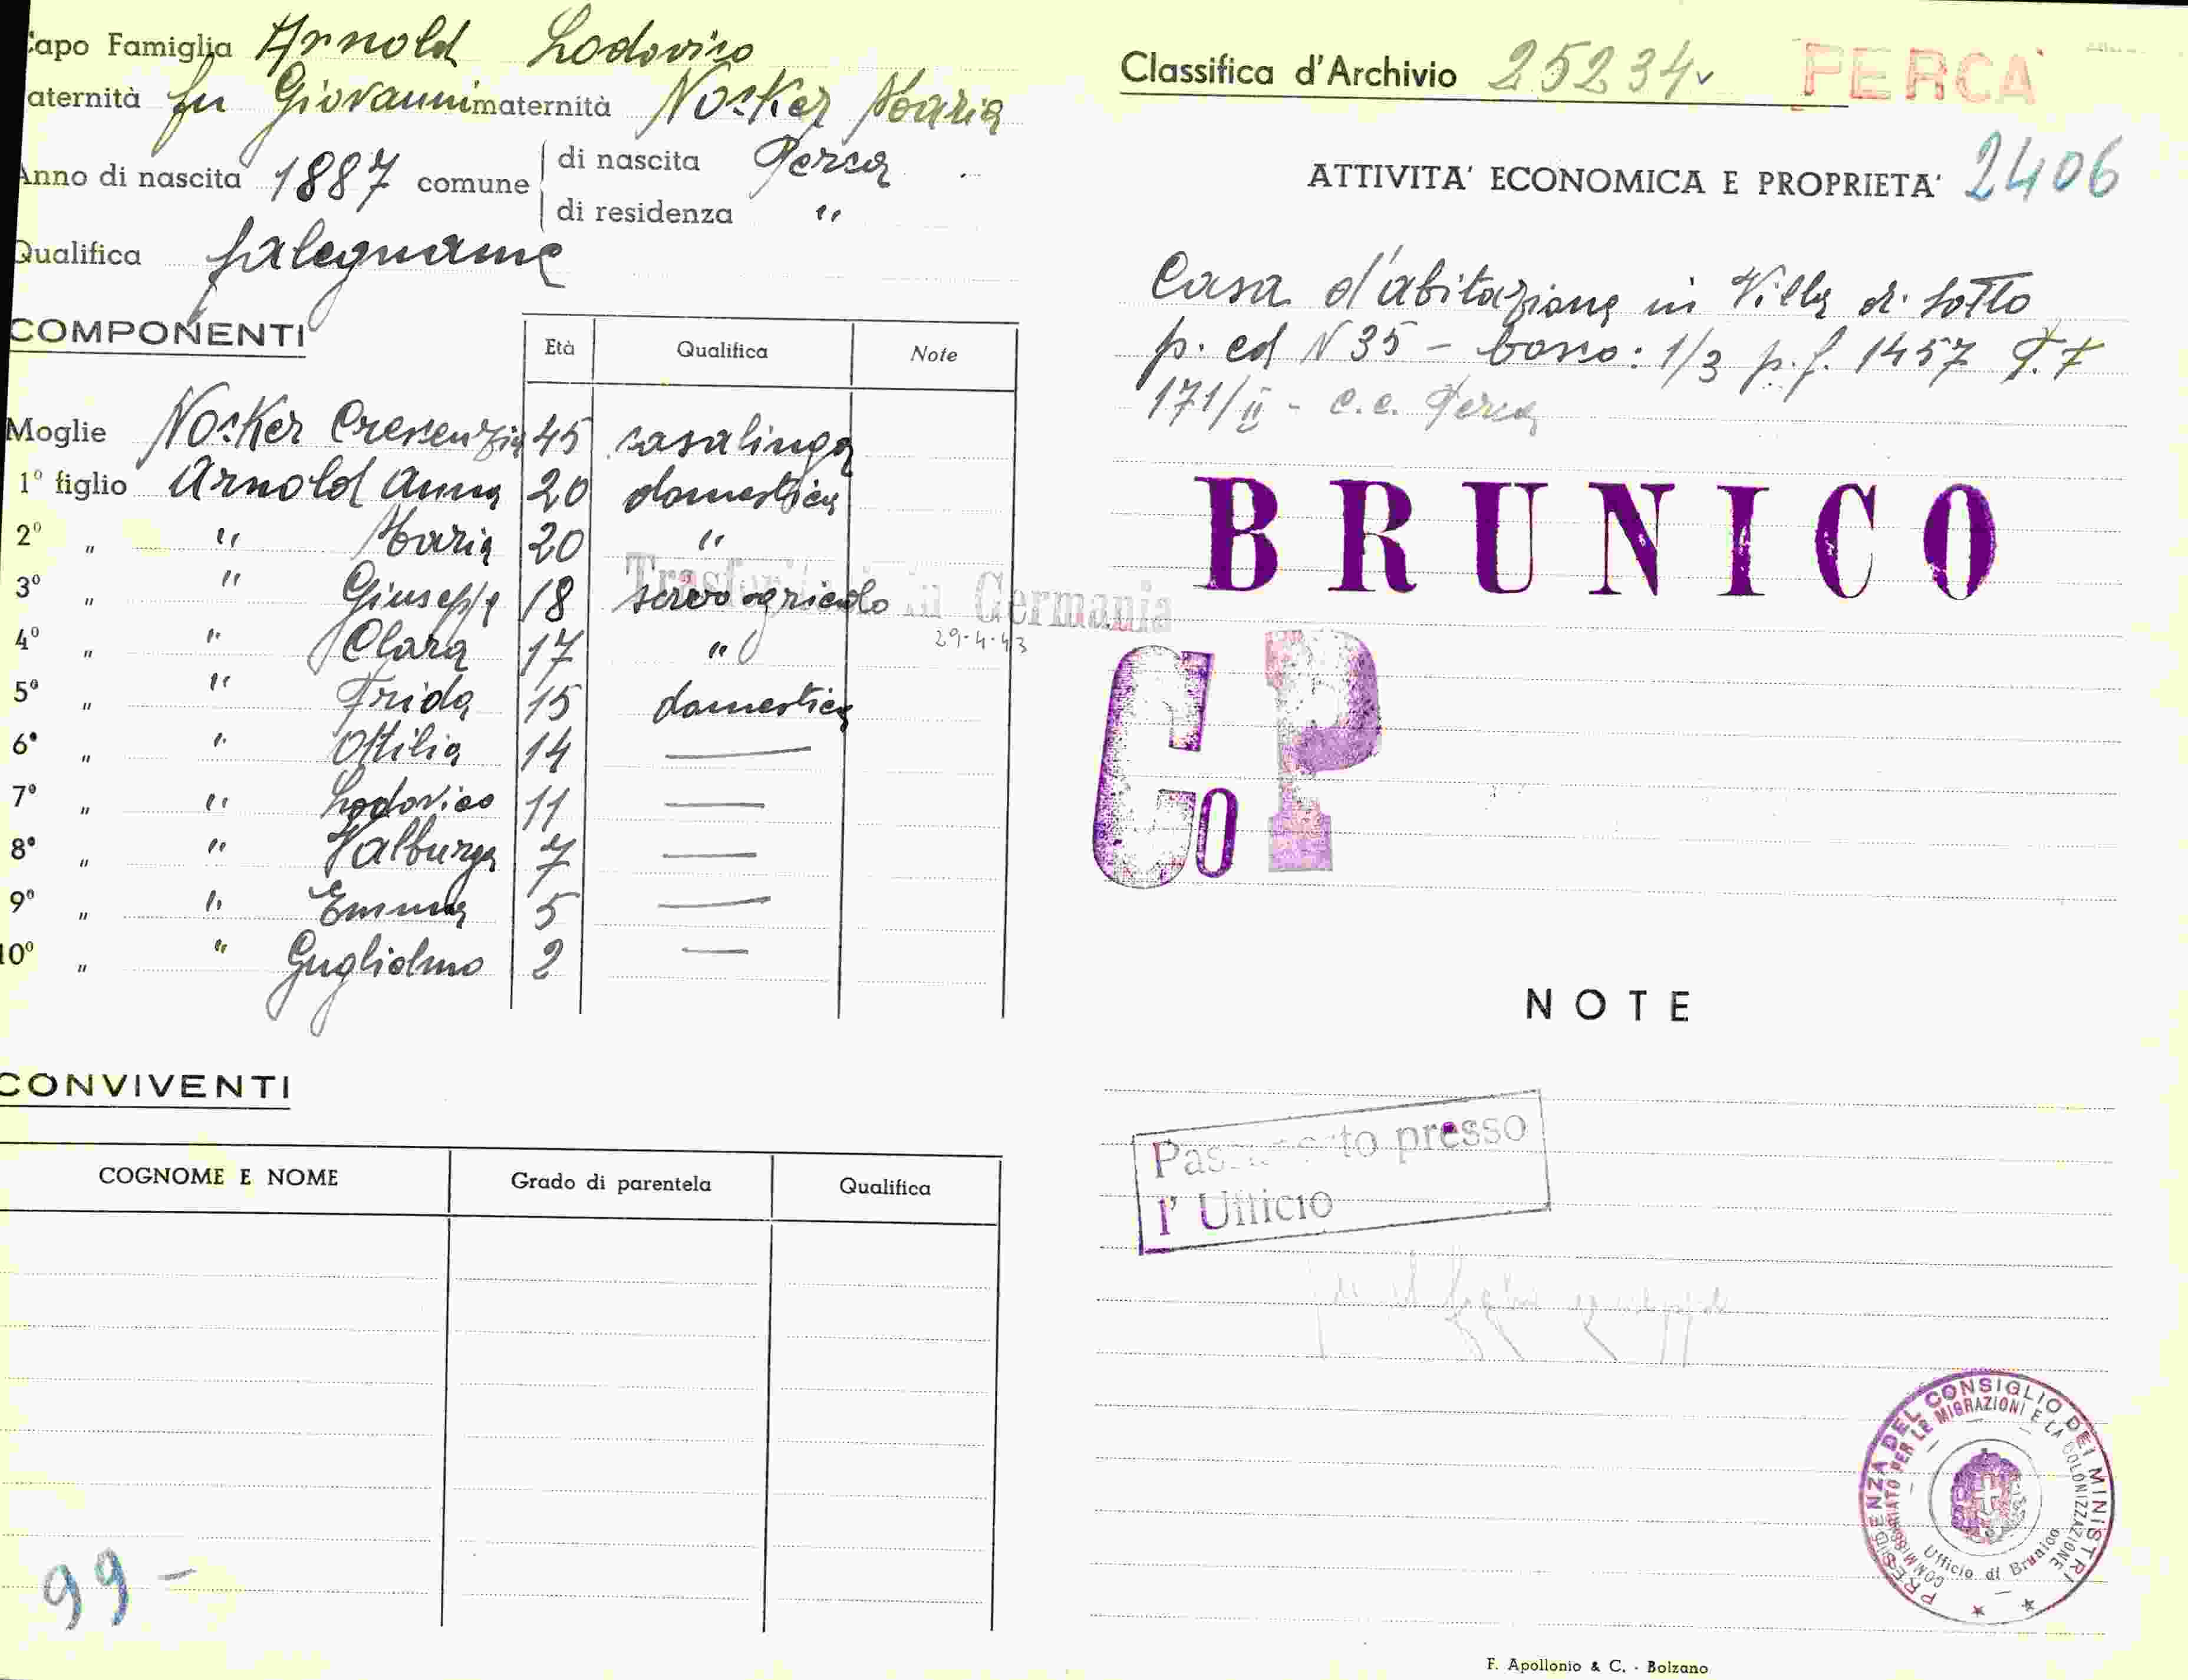 Capo Famiglia Arnold Lodovico
aternità fu Giovanni maternità Nocker Maria
Anno di nascita 1887 comune di nascita Perca
di residenza "
Qualifica falegname
COMPONENTI
Età Qualifica Note
Moglie Nocker Crescenzia 45 casalinga
1° figlio Arnold Anna 20 domestica
2° " " Maria 20 "
3° " " Giuseppe 18 servo agricolo
Trasferito in Germania
29-4-43
4° " " Clara 17 "
5° " " Frida 15 domestica
6° " " Ottilia 14 —
7° " " Lodovico 11 —
8° " " Valburga 7 —
9° " " Emma 5 —
10° " " Guglielmo 2 —
CONVIVENTI
COGNOME E NOME Grado di parentela Qualifica
99 -
Classifica d'Archivio 25234 PERCA
ATTIVITA' ECONOMICA E PROPRIETA' 2406
Casa d'abitazione in Villa di sotto
p. ed N 35 - bosco: 1/3 p.f. 1457 P.T
171/II - C.C. Perca
BRUNICO
Co P
NOTE
presso
l' Ufficio
PRESIDENZA DEL CONSIGLIO DEI MINISTRI
COMMISSARIATO PER LE MIGRAZIONI E LA COLONIZZAZIONE
Ufficio di Brunico
F. Apollonio & C. - Bolzano